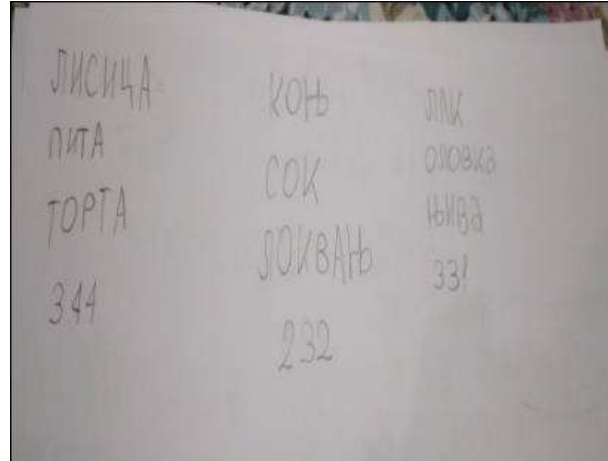 ЛИСИЦА
ПИТА
ТОРТА
344
КОЊ
СОК
ЛОКВАЊ
232
ЛАК
ОЛОВКА
ЊИВА
331